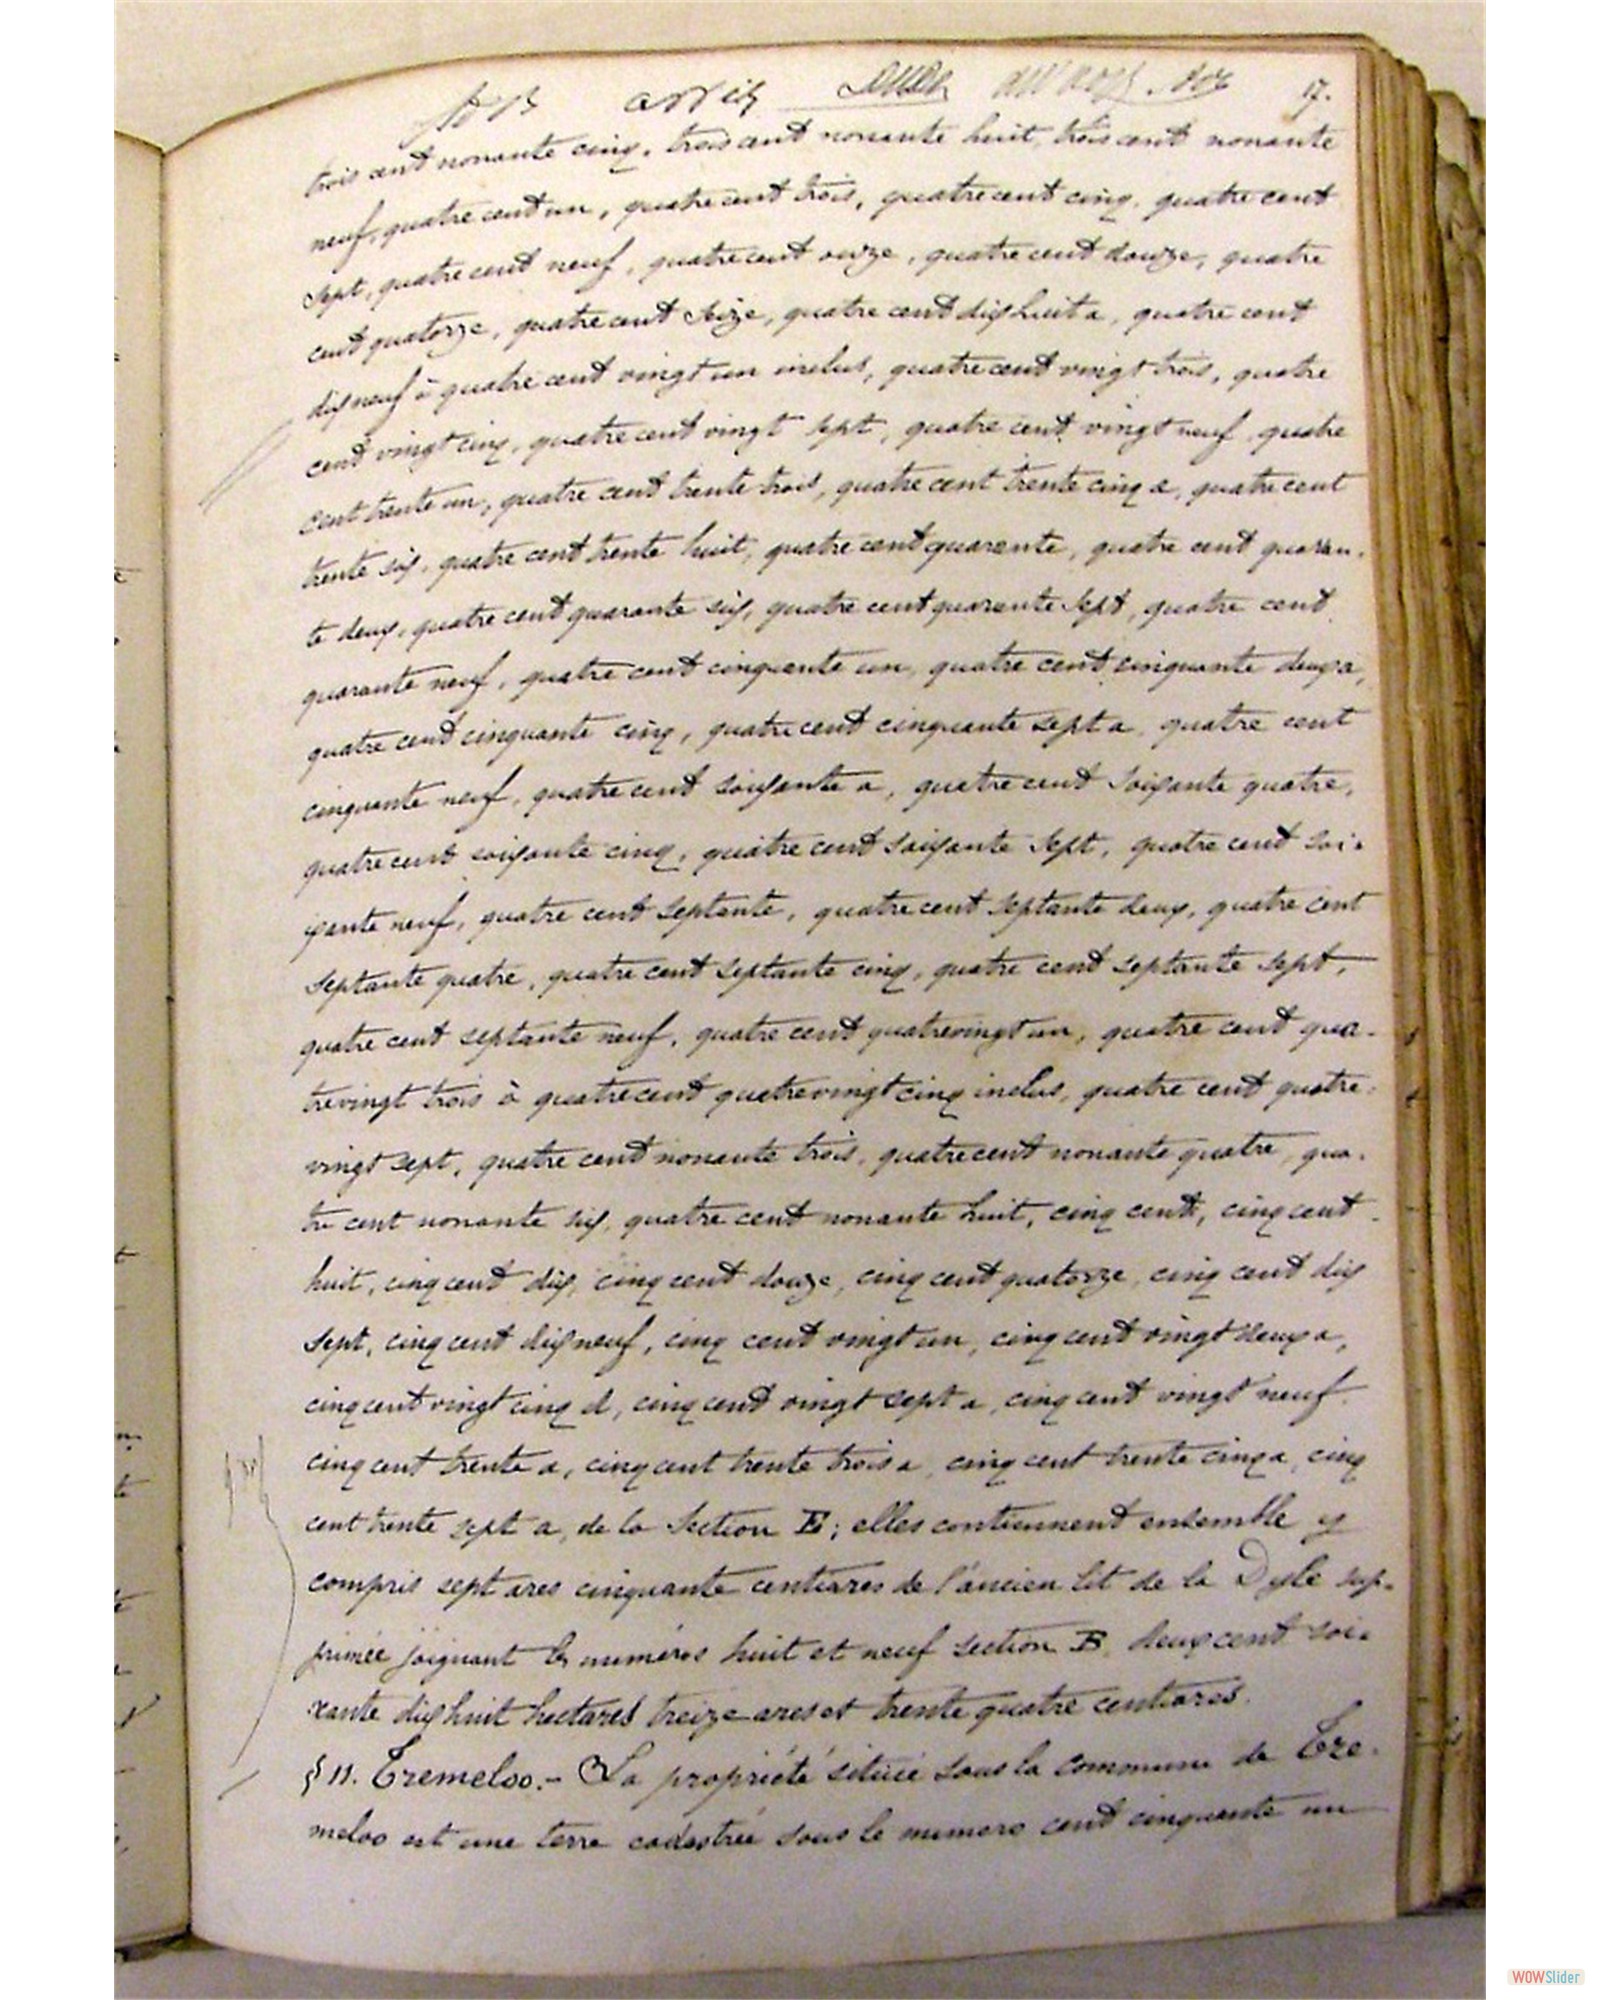 17.
trois cent nonante cinq, trois cent nonante huit, trois cent nonante
neuf, quatre cent un, quatre cent trois, quatre cent cinq, quatre cent
sept, quatre cent neuf, quatre cent onze, quatre cent douze, quatre
cent quatorze, quatre cent seize, quatre cent dixhuit a, quatre cent
dixneuf à quatre cent vingt un inclus, quatre cent vingt trois, quatre
cent vingt cinq, quatre cent vingt sept, quatre cent vingt neuf, quatre
cent trente un, quatre cent trente trois, quatre cent trente cinq a, quatre cent
trente six, quatre cent trente huit, quatre cent quarante, quatre cent quaran-
te deux, quatre cent quarante six, quatre cent quarante sept, quatre cent
quarante neuf, quatre cent cinquante un, quatre cent cinquante deux a,
quatre cent cinquante cinq, quatre cent cinquante sept a, quatre cent
cinquante neuf, quatre cent soixante a, quatre cent soixante quatre,
quatre cent soixante cinq, quatre cent soixante sept, quatre cent soi-
xante neuf, quatre cent septante, quatre cent septante deux, quatre cent
septante quatre, quatre cent septante cinq, quatre cent septante sept,
quatre cent septante neuf, quatre cent quatrevingt un, quatre cent qua-
trevingt trois à quatre cent quatrevingt cinq inclus, quatre cent quatre-
vingt sept, quatre cent nonante trois, quatre cent nonante quatre, qua-
tre cent nonante six, quatre cent nonante huit, cinq cent, cinq cent
huit, cinq cent dix, cinq cent douze, cinq cent quatorze, cinq cent dix
sept, cinq cent dixneuf, cinq cent vingt un, cinq cent vingt deux a,
cinq cent vingt cinq d, cinq cent vingt sept a, cinq cent vingt neuf
cinq cent trente a, cinq cent trente trois a, cinq cent trente cinq a, cinq
cent trente sept a, de la Section E; elles contiennent ensemble y
compris sept ares cinquante centiares de l'ancien lit de la Dyle sup-
primée joignant les numéros huit et neuf section B, deux cent soi-
xante dixhuit hectares treize ares et trente quatre centiares.
§ 11. Tremeloo. - La propriété située sous la commune de Tre-
meloo est une terre cadastrée sous le numero cent cinquante un
WOWSlider